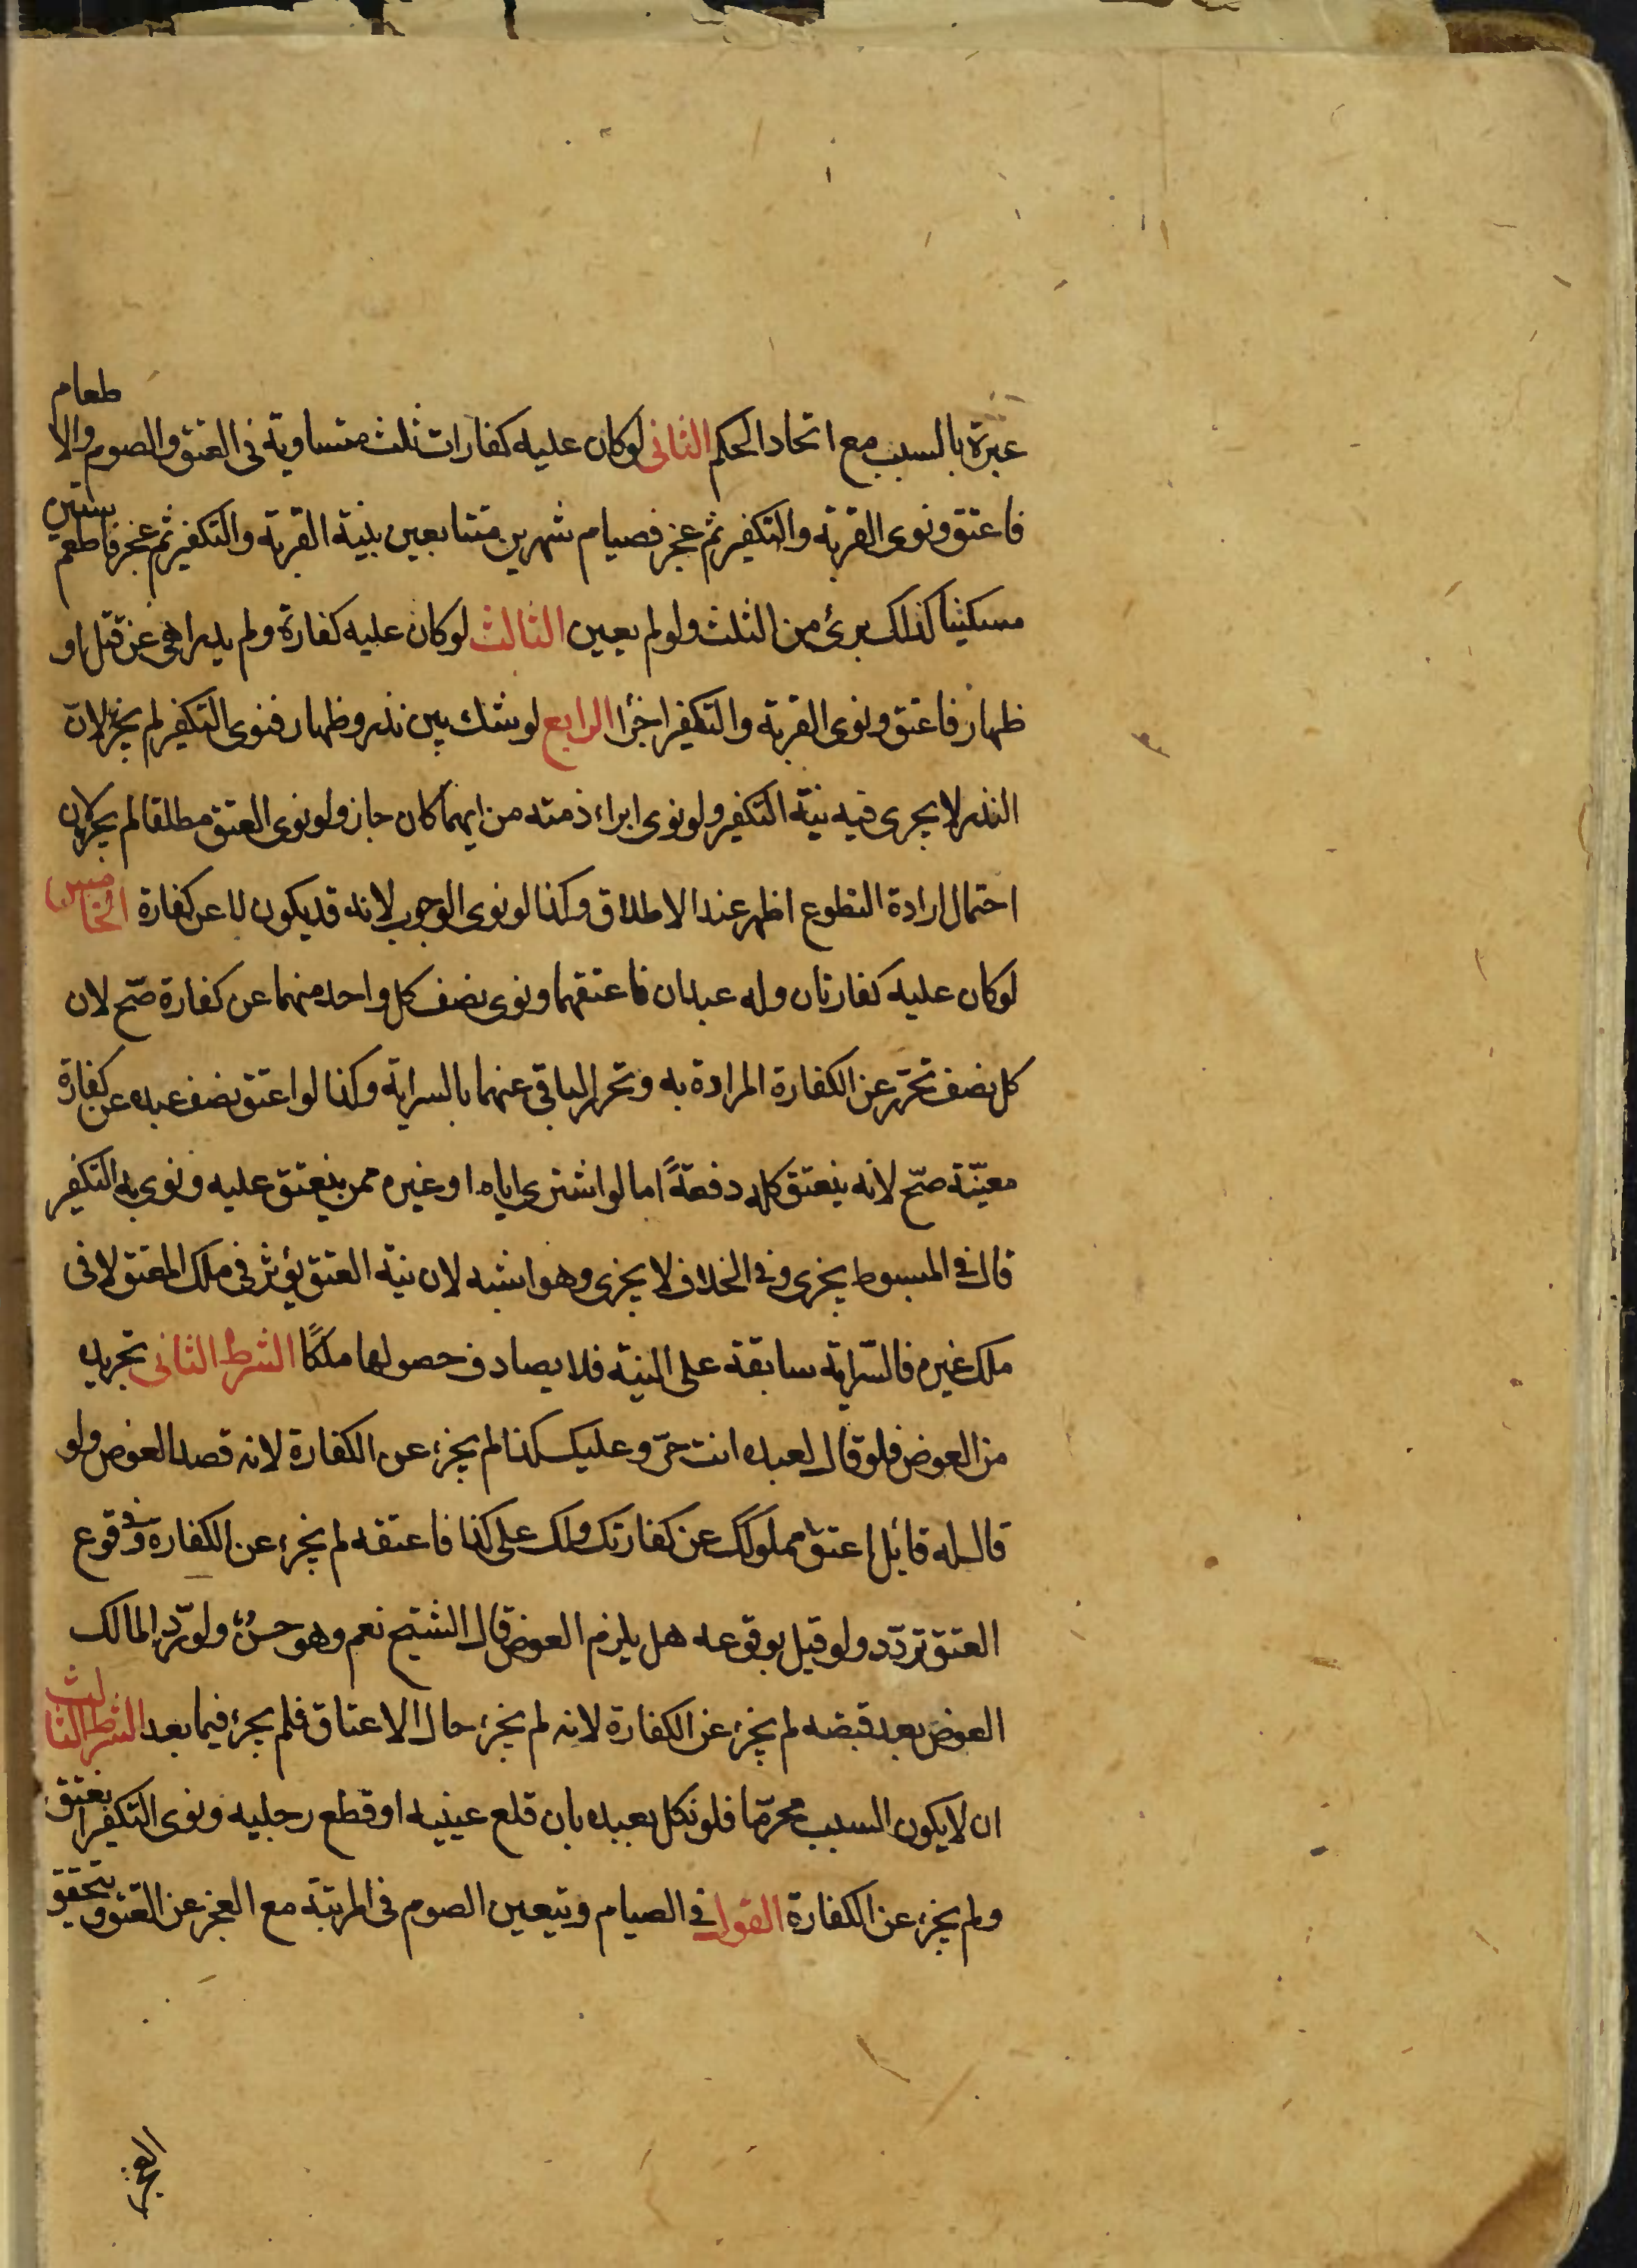 عبرة بالسبب مع اتحاد الحكم الثانى لو كان عليه كفارات ثلث متساوية فى العتق والصوم والاطعام
فاعتق ونوى القربة والتكفير ثم عجز فصيام شهرين متتابعين بنية القربة والتكفير ثم عجز فاطعم ستين
مسكينا كذلك برئ من الثلث ولو لم يعين الثالث لو كان عليه كفارة ولم يدر اهى عن قتل او
ظهار فاعتق ونوى القربة والتكفير اجزأ الرابع لو شك بين نذر وظهار فنوى التكفير لم يجز لانّ
النذر لا يجرى فيه نيّة التكفير ولو نوى ابراء ذمته من ايهما كان جاز ولو نوى العتق مطلقا لم يجز لان
احتمال ارادة التطوع اظهر عند الاطلاق وكذا لو نوى الوجوب لانه قد يكون لا عن كفارة الخامس
لو كان عليه كفارتان وله عبدان فاعتقهما ونوى نصف كل واحد منهما عن كفارة صحّ لان
كل نصف تحرّر عن الكفارة المرادة به وتحرر الباقى عنهما بالسراية وكذا لو اعتق نصف عبده عن كفارة
معيّنة صحّ لانه ينعتق كله دفعةً اما لو اشترى اباه او غيره ممن ينعتق عليه ونوى به التكفير
قال فى المبسوط يجزى وفى الخلاف لا يجزى وهو اشبه لان نية العتق يؤثر فى ملك المعتق لا فى
ملك غيره فالسّراية سابقة على النية فلا يصادف حصولها ملكًا الشرط الثانى تجريده
من العوض فلو قال لعبده انت حرّ وعليك كذا لم يجزء عن الكفارة لانه قصد العوض ولو
قال له قائل اعتق مملوكك عن كفارتك ولك على كذا فاعتقه لم يجزء عن الكفارة وفى وقوع
العتق تردّد ولو قيل بوقوعه هل يلزم العوض قال الشيخ نعم وهو حسنٌ ولو ردّ المالك
العوض بعد قبضه لم يجزء عن الكفارة لانه لم يجزء حال الاعتاق فلم يجزء فيما بعد الشرط الثالث
ان لا يكون السبب محرّما فلو نكل بعبده بان قلع عينيه او قطع رجليه ونوى التكفير انعتق
ولم يجزء عن الكفارة القول فى الصيام ويتعين الصوم فى المرتبة مع العجز عن العتق ويتحقق
العجز